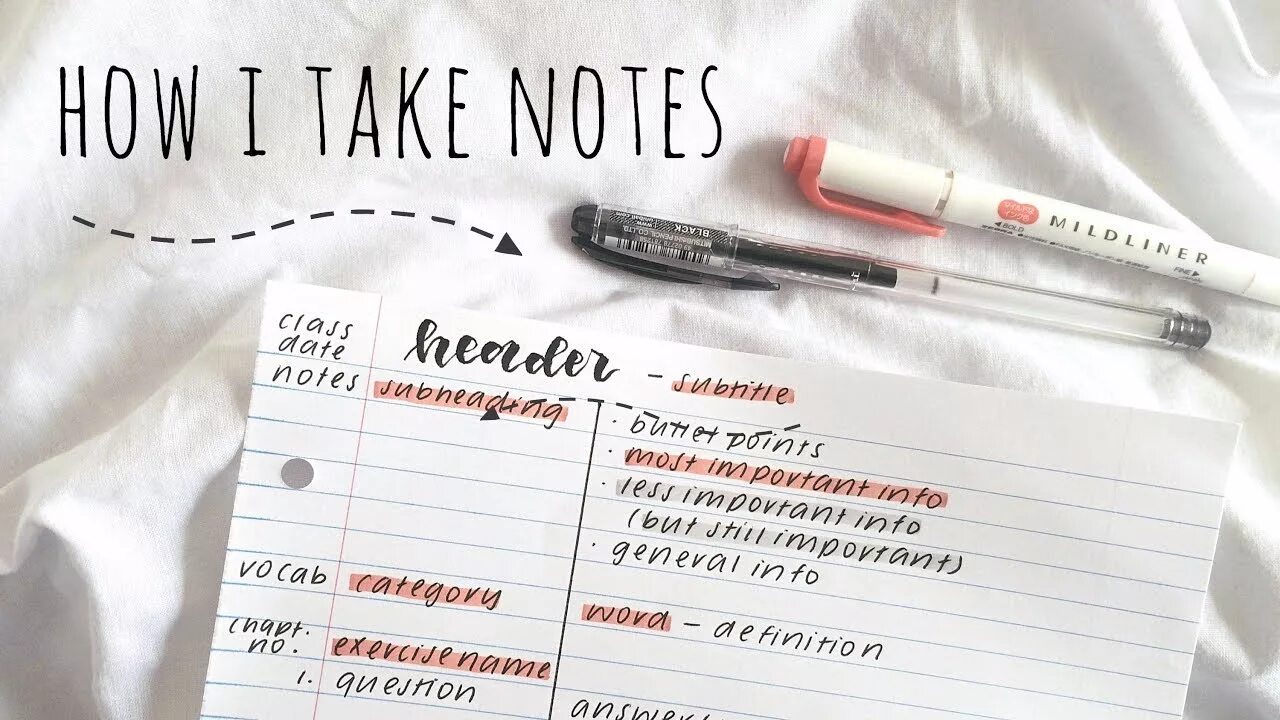 HOW I TAKE NOTES
マイルドな
インク
MILDLINER
◀BOLD
ZEBRA
FINE▶
BLACK
class
date
header - subtitle
notes
subheading
· bullet points
· most important info
· less important info
(but still important)
· general info
vocab
category
word - definition
chapt.
no.
exercise name
1. question
answer